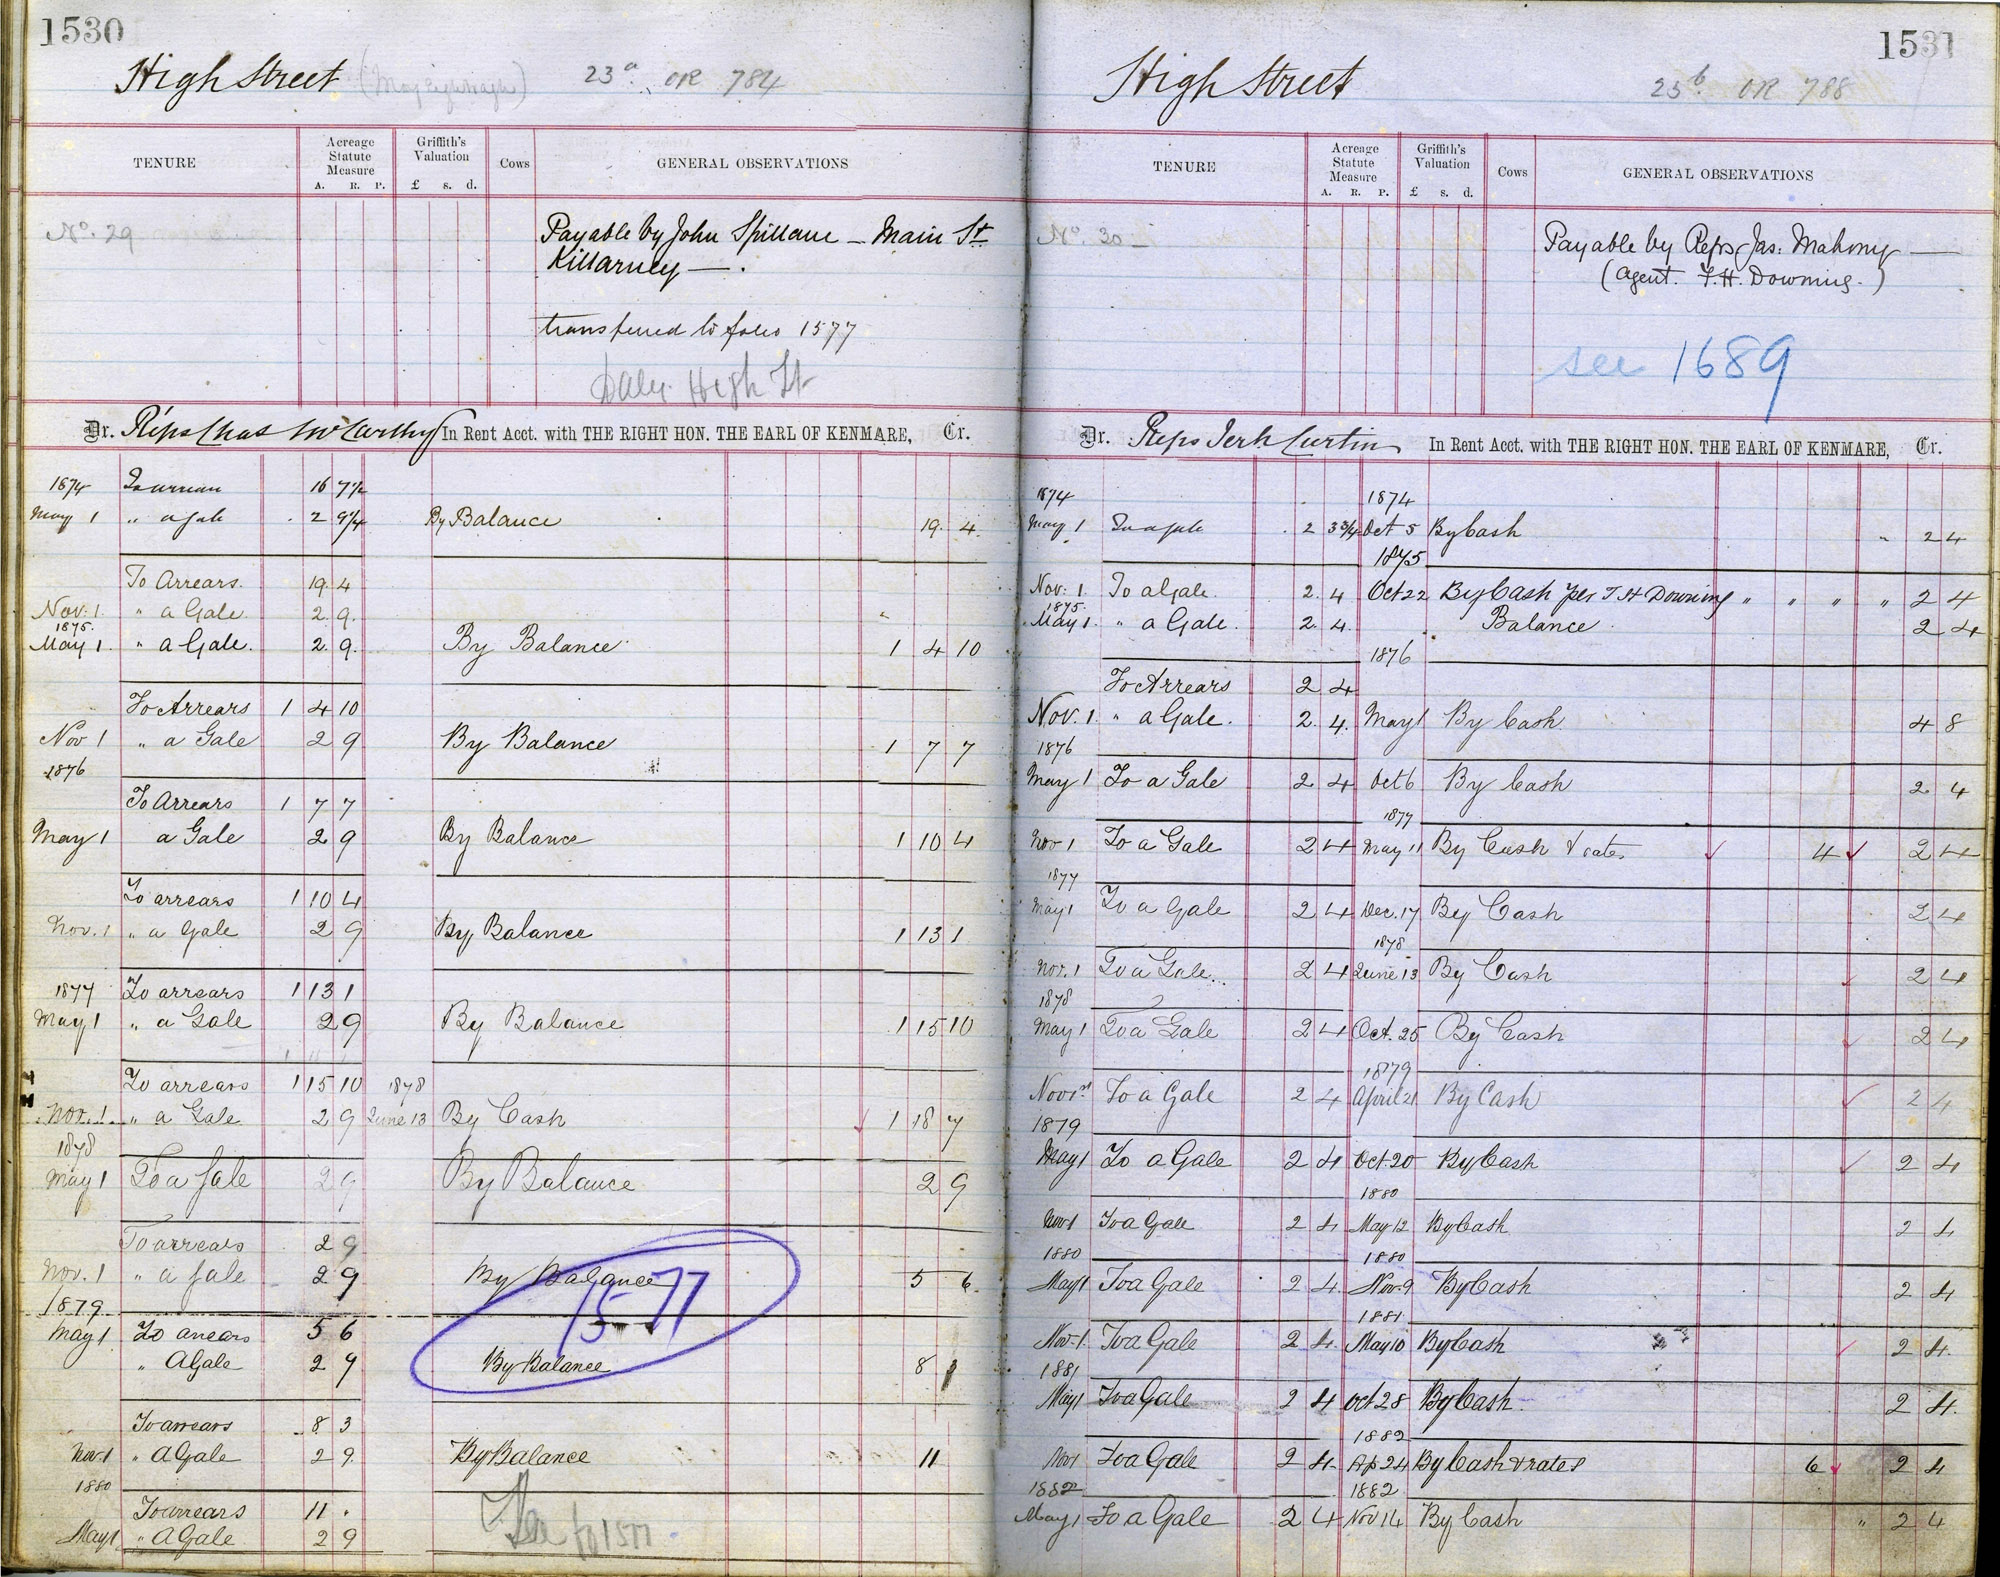 1530
High Street 23a OR 784
TENURE Acreage Statute Measure A. R. P. Griffith's Valuation £ s. d. Cows GENERAL OBSERVATIONS
No. 29
Payable by John Spillane – Main St
Killarney – .
transferred to folio 1577
Daly High St
Dr. Reps Chas McCarthy In Rent Acct. with THE RIGHT HON. THE EARL OF KENMARE, Cr.
1874 To arrears 16 7½
May 1 " a gale 2 9¼ By Balance 19 4
To Arrears 19 4
Nov: 1. " a Gale 2 9
1875.
May 1. " a Gale. 2 9 By Balance 1 4 10
To Arrears 1 4 10
Nov 1 " a Gale 2 9 By Balance 1 7 7
1876
To Arrears 1 7 7
May 1 a Gale 2 9 By Balance 1 10 4
To arrears 1 10 4
Nov. 1 " a Gale 2 9 By Balance 1 13 1
1877 To arrears 1 13 1
May 1 " a Gale 2 9 By Balance 1 15 10
To arrears 1 15 10 1878
Nov. 1 " a Gale 2 9 June 13 By Cash 1 18 7
1878
May 1 To a Gale 2 9 By Balance 2 9
To arrears 2 9
Nov. 1 " a Gale 2 9 By Balance 5 6
1879
1577
May 1 To arrears 5 6
" A Gale 2 9 By Balance 8
To arrears 8 3
Nov 1 " A Gale 2 9 By Balance 11
1880
To arrears 11 .
May 1 " A Gale 2 9
See fo 1577
1531
High Street 23b OR 788
TENURE Acreage Statute Measure A. R. P. Griffith's Valuation £ s. d. Cows GENERAL OBSERVATIONS
No. 30 –
Payable by Reps Jas: Mahony –
(agent. T. H. Downing.)
see 1689
Dr. Reps Jerh Curtin In Rent Acct. with THE RIGHT HON. THE EARL OF KENMARE, Cr.
1874 1874
May 1 To a gale 2 3¾ Oct 5 By Cash " 2 4
1875
Nov: 1. To a Gale 2 4 Oct 22 By Cash per T H Downing " " " " 2 4
1875.
May 1. " a Gale. 2 4 Balance 2 4
1876
To Arrears 2 4
Nov. 1. " a Gale. 2 4. May 1 By Cash 4 8
1876
May 1 To a Gale 2 4 Oct 6 By Cash 2 4
1877
Nov 1 To a Gale 2 4 May 11 By Cash & rates 4 2 4
1877
May 1 To a Gale 2 4 Dec. 17 By Cash 2 4
1878
Nov. 1 To a Gale 2 4 June 13 By Cash 2 4
1878
May 1 To a Gale 2 4 Oct. 25 By Cash 2 4
1879
Nov 1st To a Gale 2 4 April 21 By Cash 2 4
1879
May 1 To a Gale 2 4 Oct. 20 By Cash 2 4
1880
Nov 1 To a Gale 2 4 May 12 By Cash 2 4
1880 1880
May 1 To a Gale 2 4 Nov. 9 By Cash 2 4
1881
Nov. 1 To a Gale 2 4 May 10 By Cash 2 4
1881
May 1 To a Gale 2 4 Oct 28 By Cash 2 4
1882
Nov 1 To a Gale 2 4 Ap 24 By Cash & rates 6 2 4
1882 1882
May 1 To a Gale 2 4 Nov 14 By Cash " 2 4